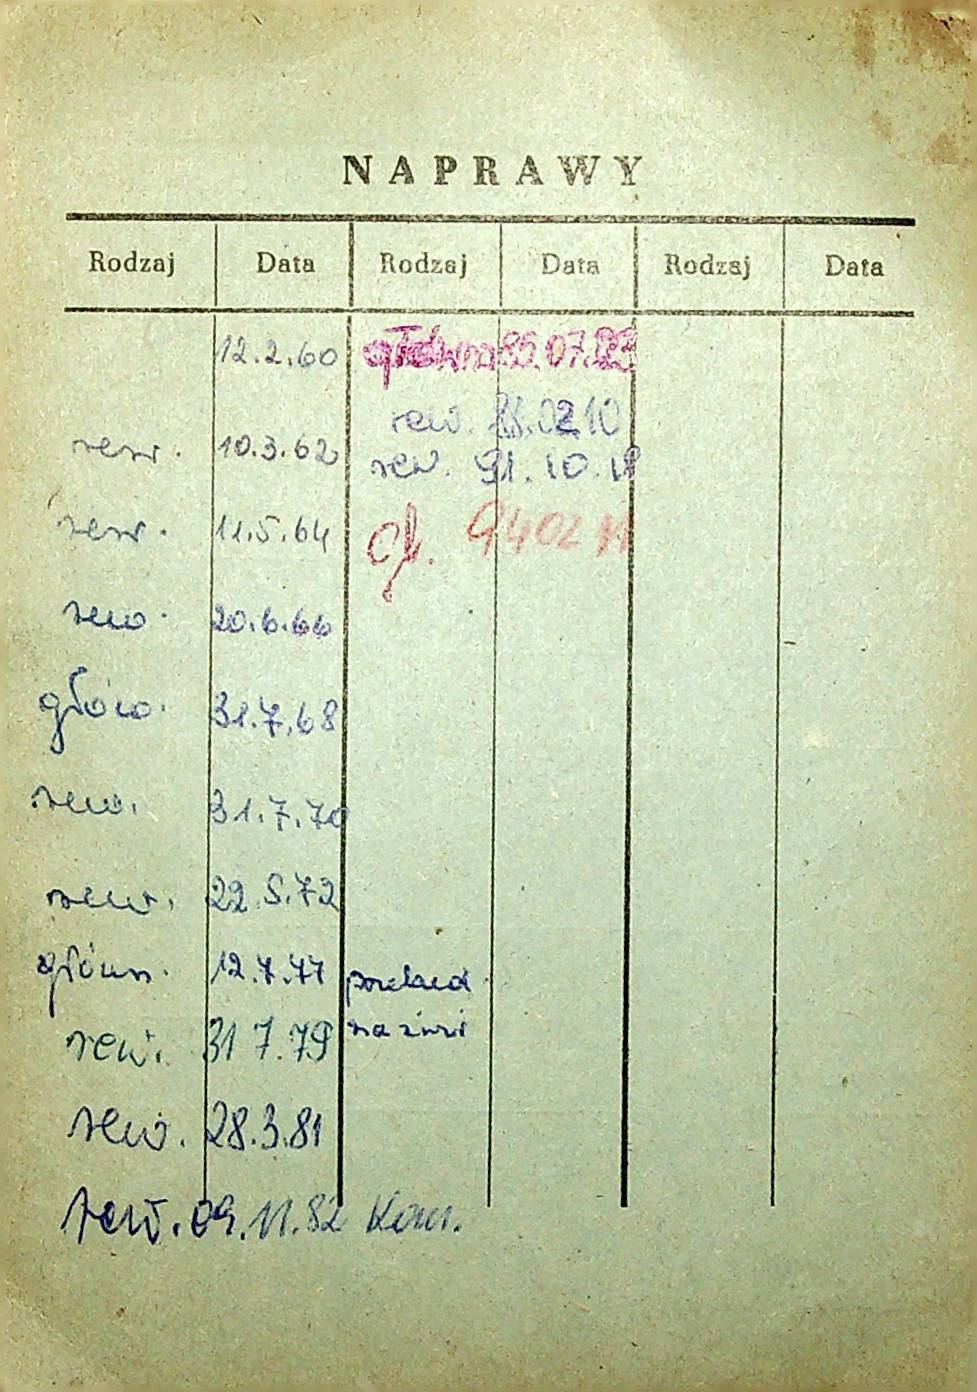 NAPRAWY
Rodzaj Data Rodzaj Data Rodzaj Data
12.2.60 główna 85.07.23
rew. 88.02 10
rew. 10.3.62 rew. 91.10.18
rew. 11.5.64 gł. 9402
rew. 20.6.66
główn. 31.7.68
rew. 31.7.70
rew. 22.5.72
główn. 12.7.77
rew. 31 7.79
rew. 28.3.81
rew. 09.11.82